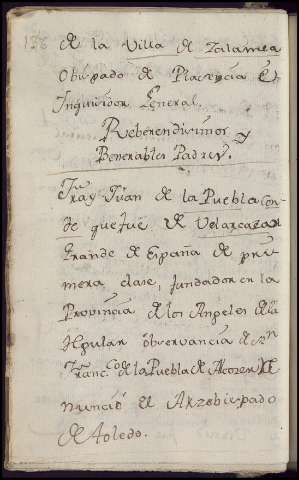 138 de la Villa de Zalamea
Obispado de Placencia et
Inquisidor General.
Reberendisimos y
Benerables Padres.
Fray Juan de la Puebla con-
de que fué de Velarcazar
Grande de España de pri-
mera clase, fundador en la
Provincia de los Angeles de la
regular observancia de Sn
Franc.co de la Puebla de Alcocer Re
nunció el Arzobispado
de Toledo.